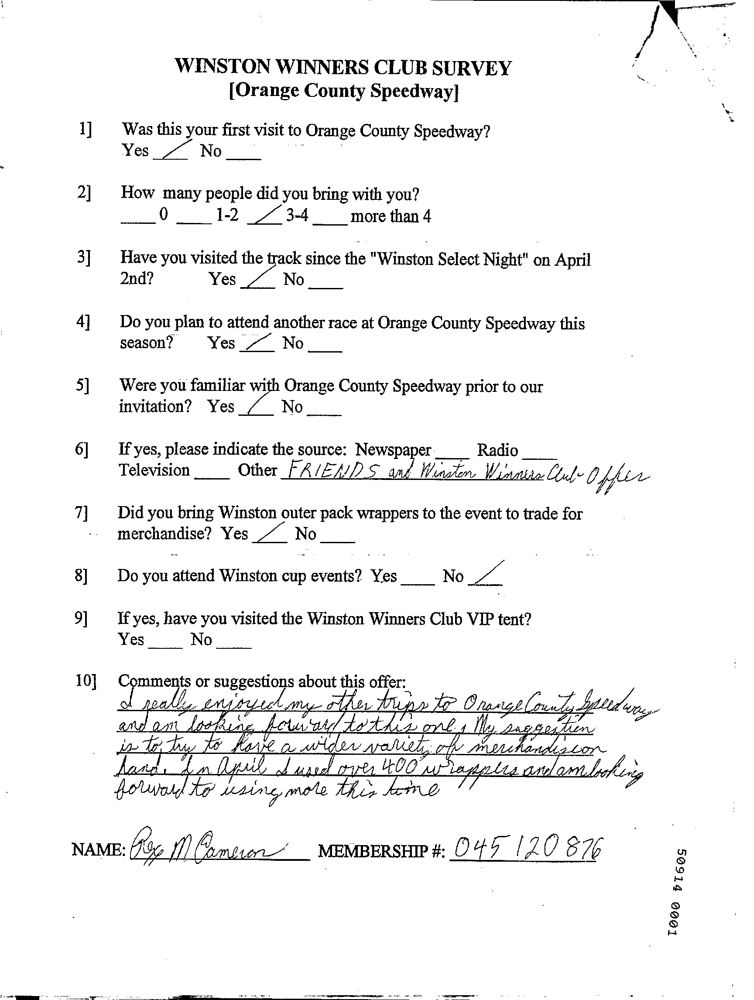 WINSTON WINNERS CLUB SURVEY
[Orange County Speedway]
1] Was this your first visit to Orange County Speedway?
Yes ✓ No ____
2] How many people did you bring with you?
____ 0 ____ 1-2 ✓ 3-4 ____ more than 4
3] Have you visited the track since the "Winston Select Night" on April
2nd? Yes ✓ No ____
4] Do you plan to attend another race at Orange County Speedway this
season? Yes ✓ No ____
5] Were you familiar with Orange County Speedway prior to our
invitation? Yes ✓ No ____
6] If yes, please indicate the source: Newspaper ____ Radio ____
Television ____ Other FRIENDS and Winston Winners Club Offer
7] Did you bring Winston outer pack wrappers to the event to trade for
merchandise? Yes ✓ No ____
8] Do you attend Winston cup events? Yes ____ No ✓
9] If yes, have you visited the Winston Winners Club VIP tent?
Yes ____ No ____
10] Comments or suggestions about this offer:
I really enjoyed my other trips to Orange County Speedway
and am looking forward to this one. My suggestion
is to try to have a wider variety of merchandise on
hand. In April I used over 400 wrappers and am looking
forward to using more this time
NAME: Rex M Cameron MEMBERSHIP #: 045120876
50914 0001